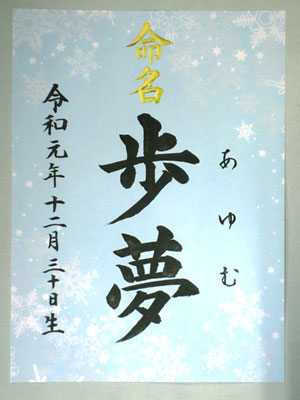 命名
あゆむ
歩夢
令和元年十二月三十日生